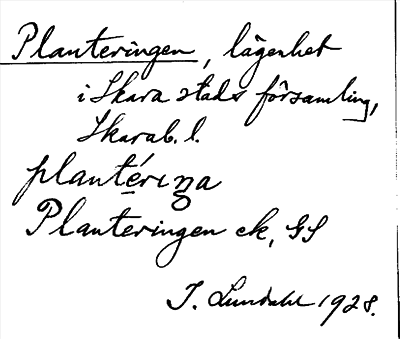 Planteringen, lägenhet
i Skara stads församling,
Skarab. l.
plantérıŋa
Planteringen ek, GS
J. Lundahl 1928.